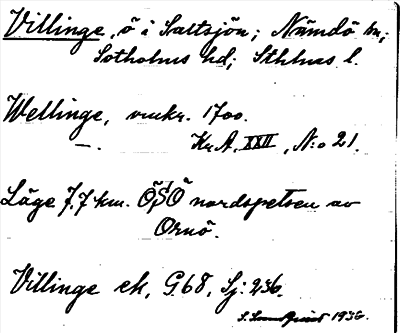 Villinge, ö i Saltsjön; Nämdö sn;
Sotholms hd; Sthlms l.
Wellinge, omkr. 1700.
—. Kr. A. XXII, N:o 21.
Läge 7,7 km. ÖSÖ nordspetsen av
Ornö.
Villinge ek, G.68, Sj: 236.
1936.